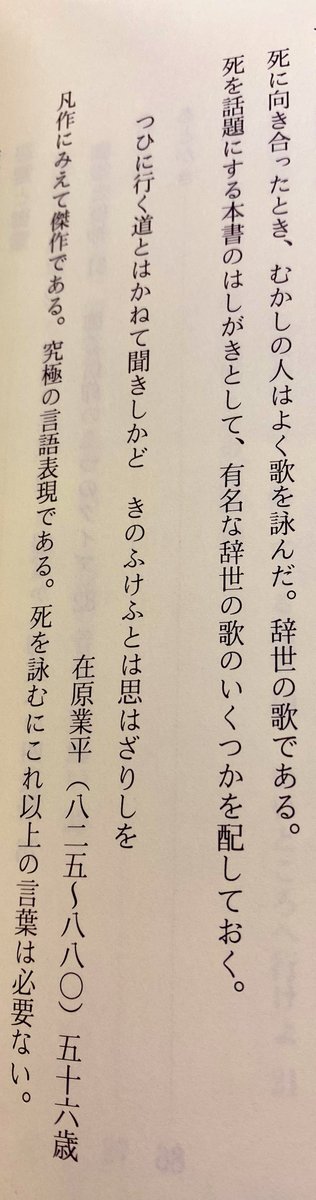 死に向き合ったとき、むかしの人はよく歌を詠んだ。辞世の歌である。
死を話題にする本書のはしがきとして、有名な辞世の歌のいくつかを配しておく。
つひに行く道とはかねて聞きしかど　きのふけふとは思はざりしを
在原業平（八二五〜八八〇）五十六歳
凡作にみえて傑作である。究極の言語表現である。死を詠むにこれ以上の言葉は必要ない。